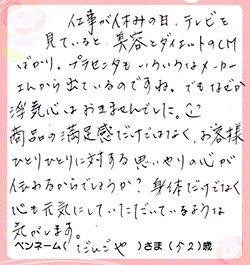 仕事が休みの日、テレビを
見ていると、美容とダイエットのCM
ばかり。プラセンタもいろいろなメーカー
さんから出ているのですね。でもなぜか
浮気心はおきませんでした。
商品の満足感だけではなく、お客様
ひとりひとりに対する思いやりの心が
伝わるからでしょうか？身体だけでなく
心も元気にしていただいているような
気がします。
ペンネーム( だんごや )さま (52)歳